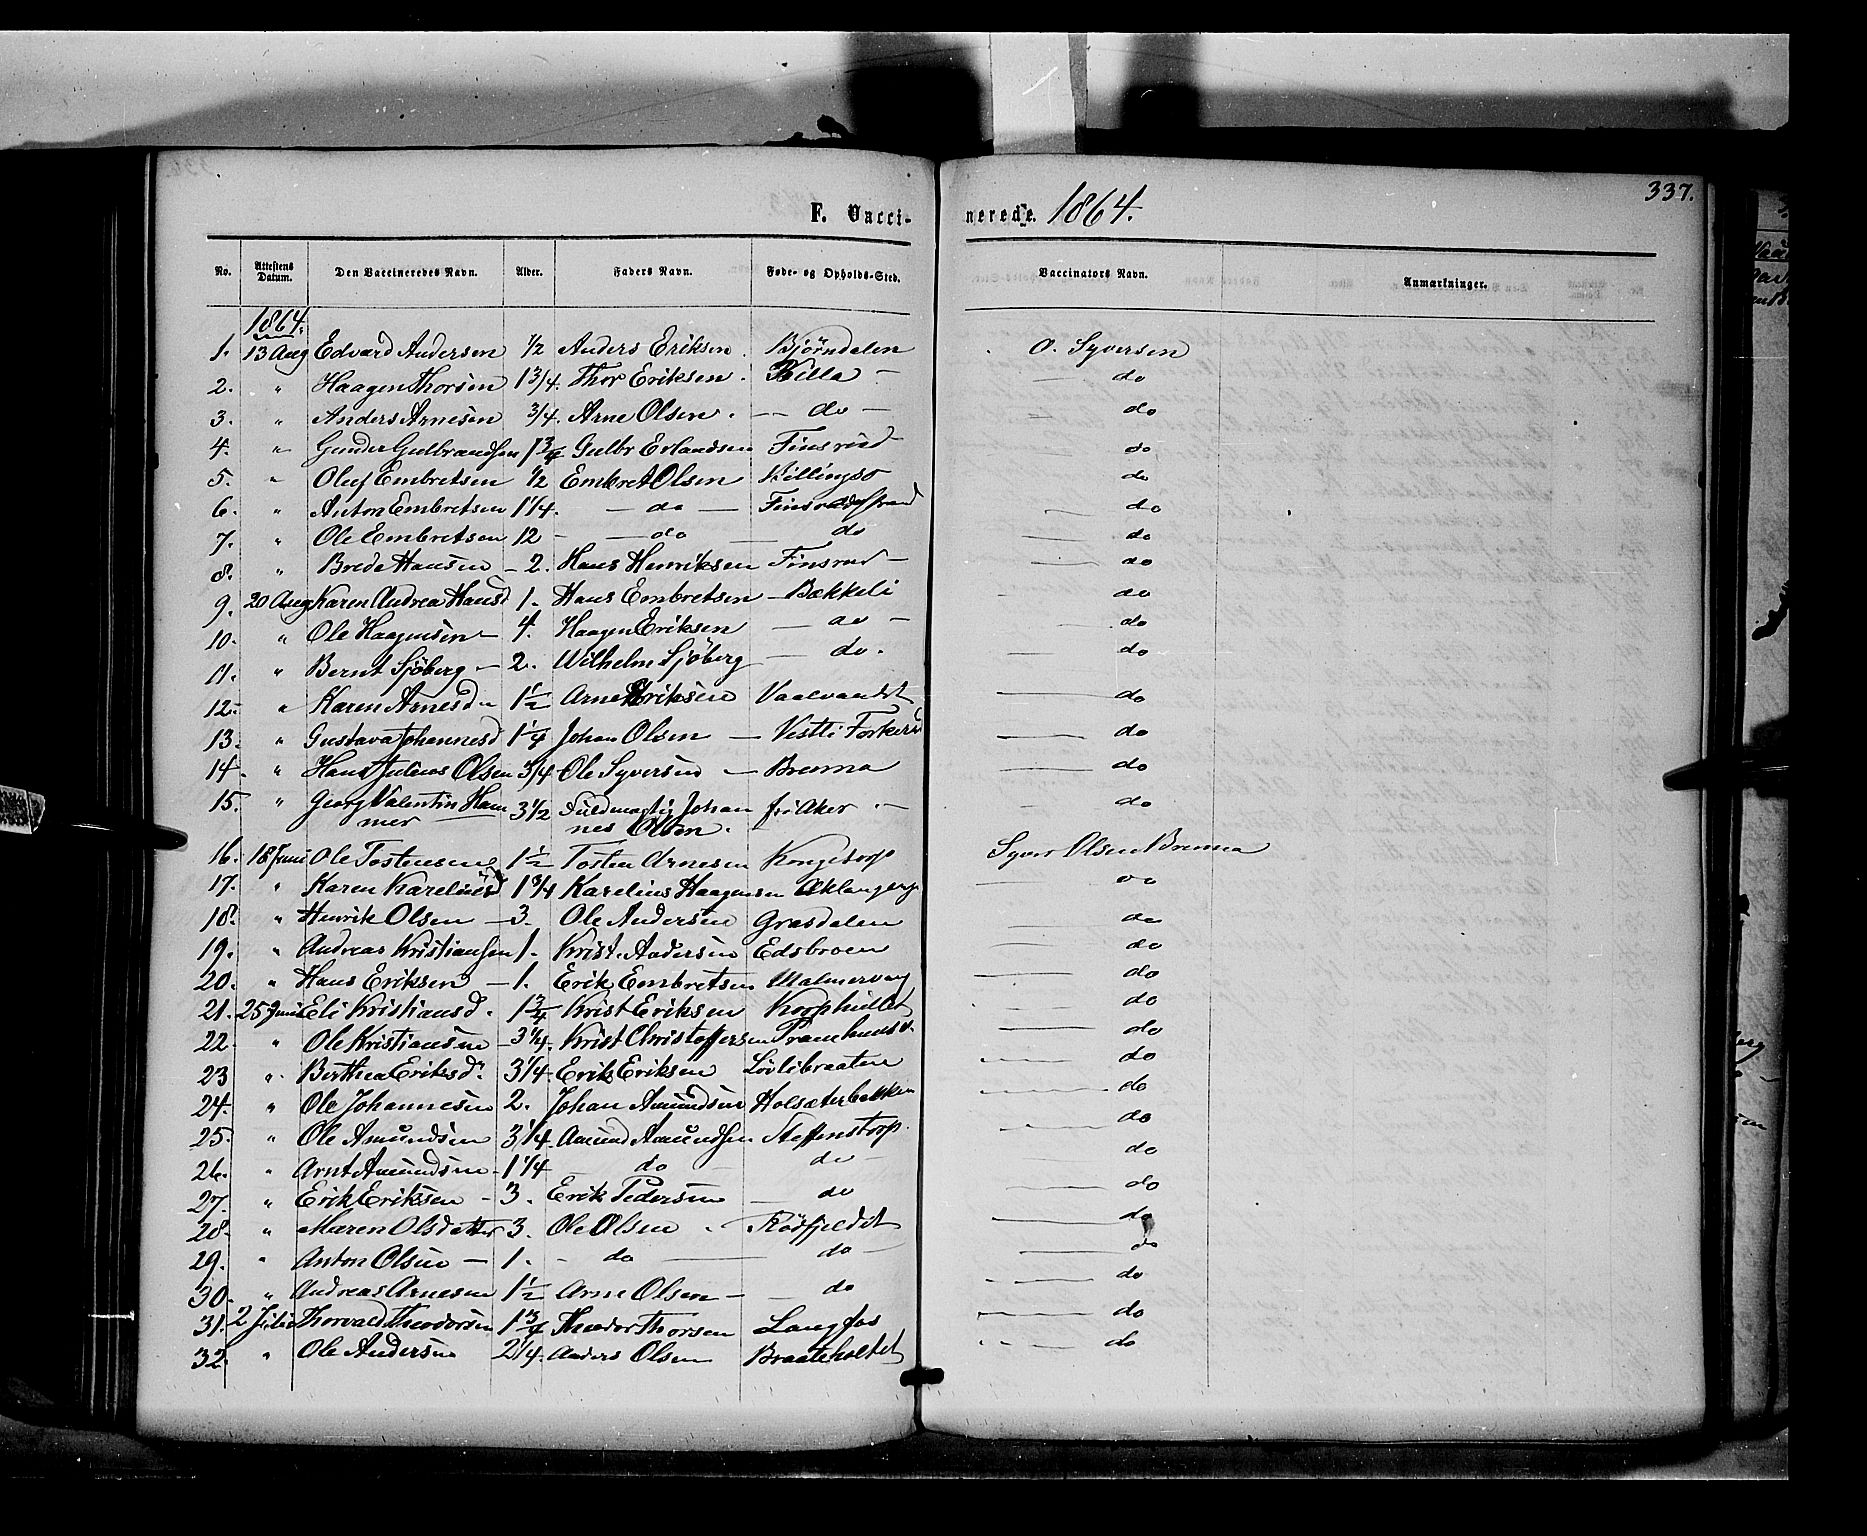 337.
F. Vacci-nerede. 1864.
No. Attestens Datum. Den Vaccineredes Navn. Alder. Faders Navn. Føde- og Opholds-Sted. Vaccinators Navn. Anmærkninger.
1864.
1. 13 Aug Edvard Andersen 1/2 Anders Eriksen. Bjørndalen O. Syversen
2. " Haagen Thorsen 1 3/4. Thor Eriksen. Killa - do
3. " Anders Arnesen 3/4. Arne Olsen. - do - do
4. " Gunder Gulbrandsen 1 3/4 Gulbr Erlandsen Finsrud do
5. " Oluf Embretsen 1/2 Embret Olsen Killingso do
6. " Anton Embretsen 1 1/4. - do - do
7. " Ole Embretsen 12 - do - do do
8. " Brede Hansen - 2. Hans Henriksen Finsrud - do
9. 20 Aug Karen Andrea Hansd 1. Hans Embretsen - Bækkeli do
10. " Ole Haagensen - 4. Haagen Eriksen - do - do
11. " Bernt Sjöberg - 2. Wilhelm Sjöberg - do. do
12. " Karen Arnesd 1 1/2 Arne Eriksen Vaalvandet do
13. " Gustava Johannesd 1 1/4 Johan Olsen - Vestli Forkerud do
14. " Hans Julius Olsen 3/4 Ole Syversen - Brenna do
15. " Georg Valentin Ham 3 1/2 Fuldmægtig Johan fr: Aker - do
mer nes Olsen.
16. 18 Juni Ole Tostensen 1 1/2 Tosten Arnesen Kongetorp Syver Olsen Brenna
17. " Karen Kareliusd 1 3/4 Karelius Haagensen do
18. " Henrik Olsen - 3. Ole Andersen Grasdalen do
19. " Andreas Kristiansen 1. Krist. Andersen Edsbroen do
20. " Hans Eriksen - 1. Erik Embretsen Malmervang do
21. 25 Juni Eli Kristiansd. 1 3/4 Krist Eriksen Korphullet do
22. " Ole Kristiansen - 3 1/4. Krist Christoffersen do
23 " Berthea Eriksd. 3 1/4 Erik Eriksen Lövlibraaten do
24. " Ole Johannesen 2. Johan Amundsen Holsæterbakken do
25. " Ole Amundsen 3 1/4 Amund Amundsen Steffenstorp. do
26. " Arnt Amundsen - 1 1/4 - do - do - do
27. " Erik Eriksen - 3. Erik Pedersen - do do
28. " Maren Olsdatter 3. Ole Olsen . Rödfjeldet do
29. " Anton Olsen - 1. - do - do - do
30. " Andreas Arnesen 1 1/2 Arne Olsen - - do do
31. 2 Juli Thorvald Theodorsen 1 3/4 Theodor Thorsen Langfos do
32. " Ole Andersen 2 1/4. Anders Olsen Braateholtet do